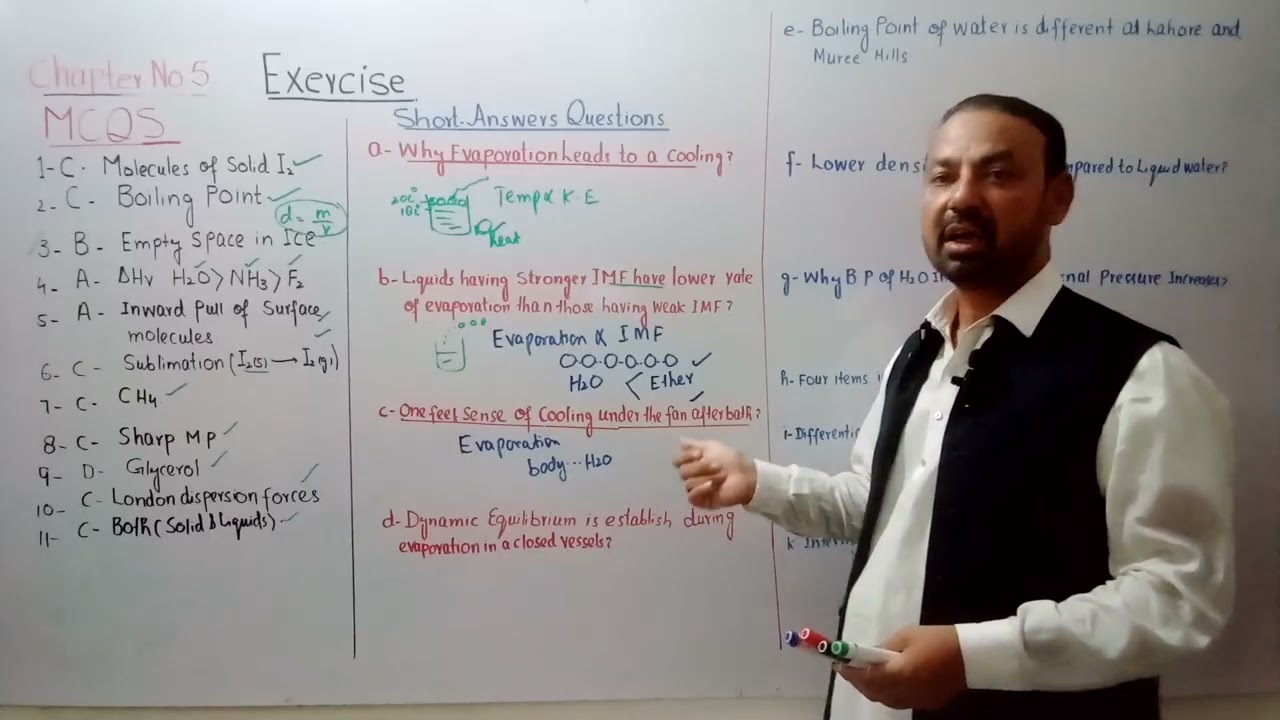 Chapter No 5
Exercise
MCQS
1- C. Molecules of Solid I2
2- C. Boiling Point
d = m/v
3- B- Empty Space in Ice
4- A- ΔHv H2O > NH3 > F2
5- A- Inward Pull of Surface
molecules
6- C- Sublimation (I2(s) → I2(g))
7- C- CH4
8- C- Sharp MP
9- D- Glycerol
10- C- London dispersion forces
11- C- Both (Solid & Liquids)
Short-Answers Questions
a- Why Evaporation Leads to a Cooling?
Temp ∝ K.E
heat
b- Liquids having stronger IMF have lower rate
of evaporation than those having weak IMF?
Evaporation ∝ IMF
H2O < Ether
c- One feel sense of Cooling under the fan after bath?
Evaporation
body...H2O
d- Dynamic Equilibrium is establish during
evaporation in a closed vessels?
e- Boiling Point of water is different at Lahore and
Muree Hills
f- Lower compared to Liquid water?
g- Why B P of H2O Pressure Increases?
h- Four items
i-
k